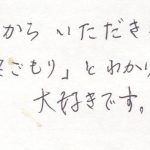 からいただき
ごもり」とわかり
大好きです。